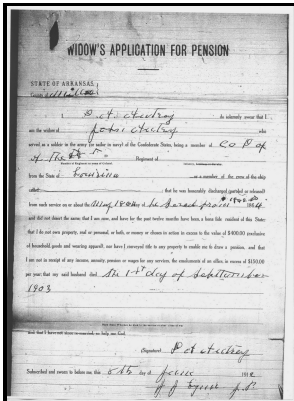 WIDOW'S APPLICATION FOR PENSION
STATE OF ARKANSAS,
County of Miller
I, P. A. Autrey do solemnly swear that I
am the widow of John Autrey who
served as a soldier in the army (or sailor in navy) of the Confederate States, being a member of Co
of the Regiment of
from the State of as a member of the crew of the ship
that he was honorably discharged (paroled or released)
from such service on or about the
and did not desert the same; that I am now, and have for the past twelve months been, a bona fide resident of this State;
that I do not own property, real or personal, or both, or money or choses in action in excess of the value of $400.00 (exclusive
of household goods and wearing apparel), nor have I conveyed title to any property to enable me to draw a pension, and that
I am not in receipt of any income, annuity, pension or wages for any services, the emoluments of an office, in excess of $150.00
per year; that my said husband died the 1st day of
1903
and that I have not since re-married: so help me God.
(Signature) P A Autrey
Subscribed and sworn to before me this day of June 191